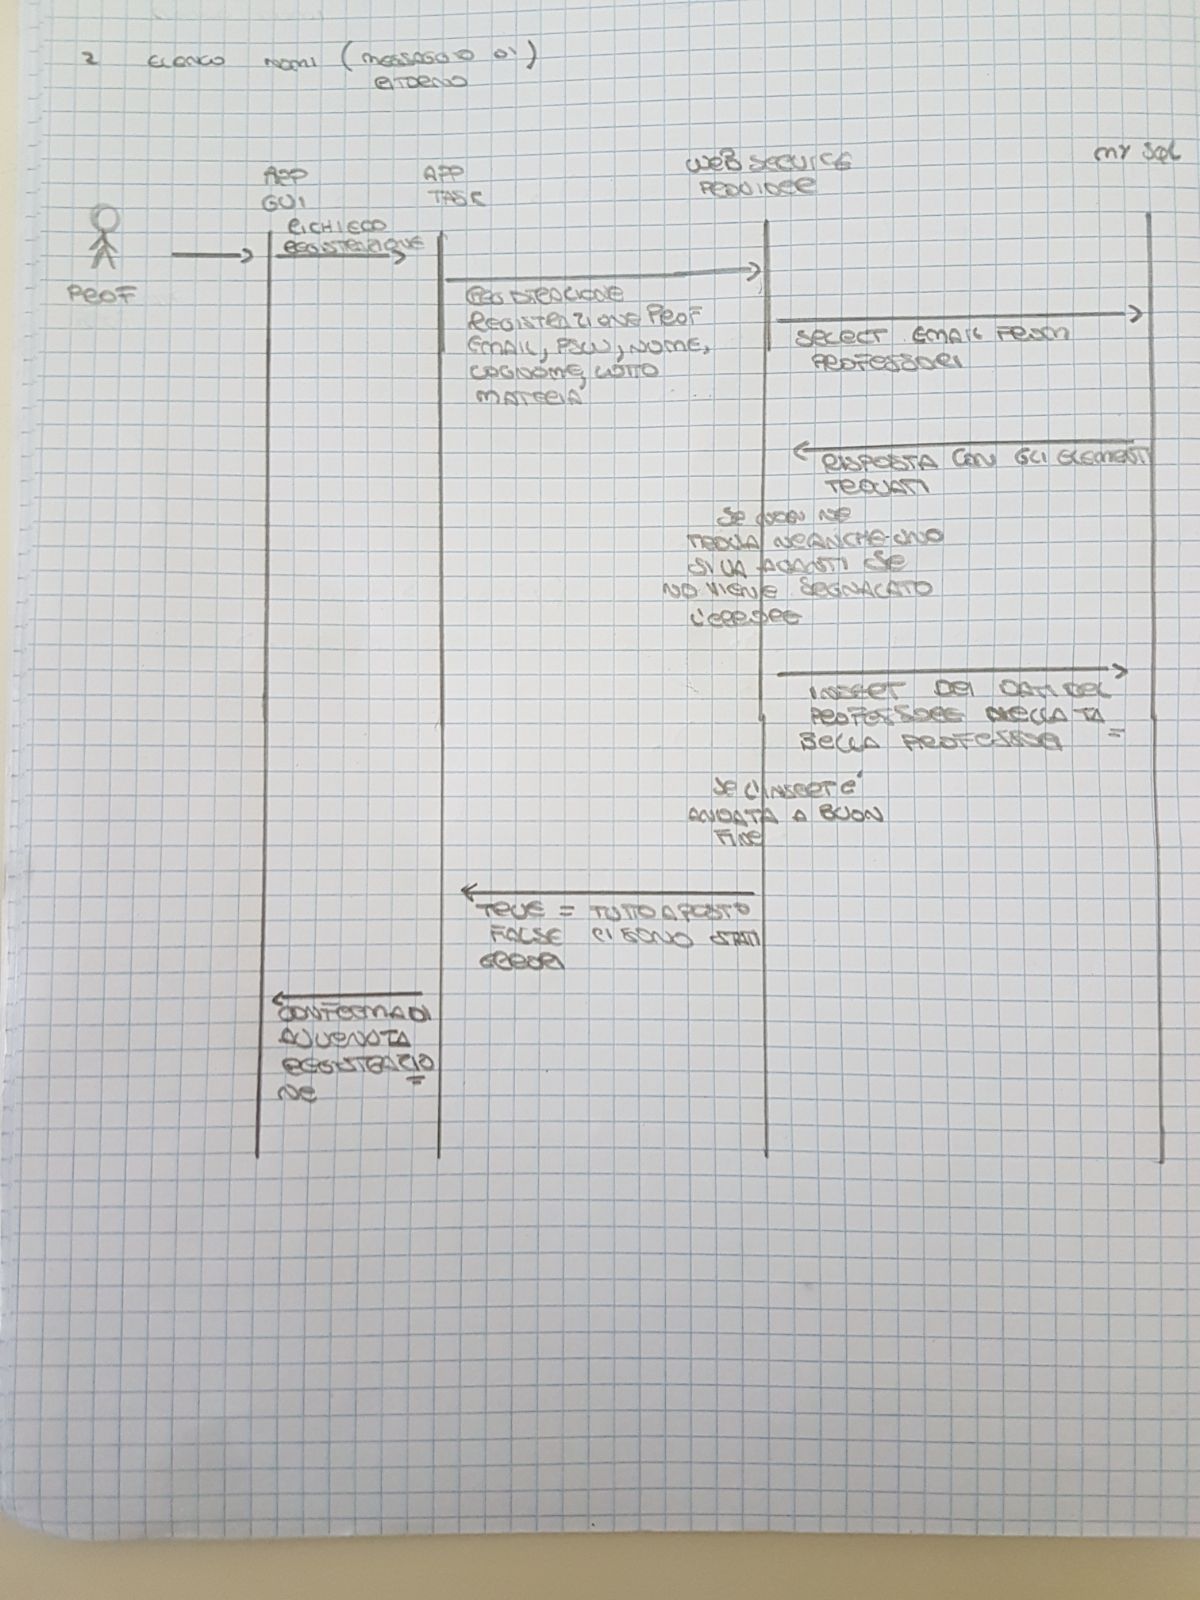 2 ELENCO NOMI (MESSAGGIO DI)
RITORNO
APP
GUI
APP
TASK
WEB SERVICE
PROVIDER
MY SQL
PROF
RICHIEDO
REGISTRAZIONE
REGISTRAZIONE PROF
EMAIL, PSW, NOME,
COGNOME,
MATERIA
SELECT EMAIL FROM
PROFESSORI
RISPOSTA CON GLI ELEMENTI
TROVATI
SE NON NE
TROVA NEANCHE UNO
SI VA AVANTI SE
NO VIENE SEGNALATO
L'ERRORE
INSERT DEI DATI DEL
PROFESSORE NELLA TA
BELLA PROFESSORI
SE L'INSERT E'
ANDATA A BUON
FINE
TRUE = TUTTO APOSTO
FALSE CI SONO STATI
ERRORI
CONFERMA DI
AVVENUTA
REGISTRAZIO
NE